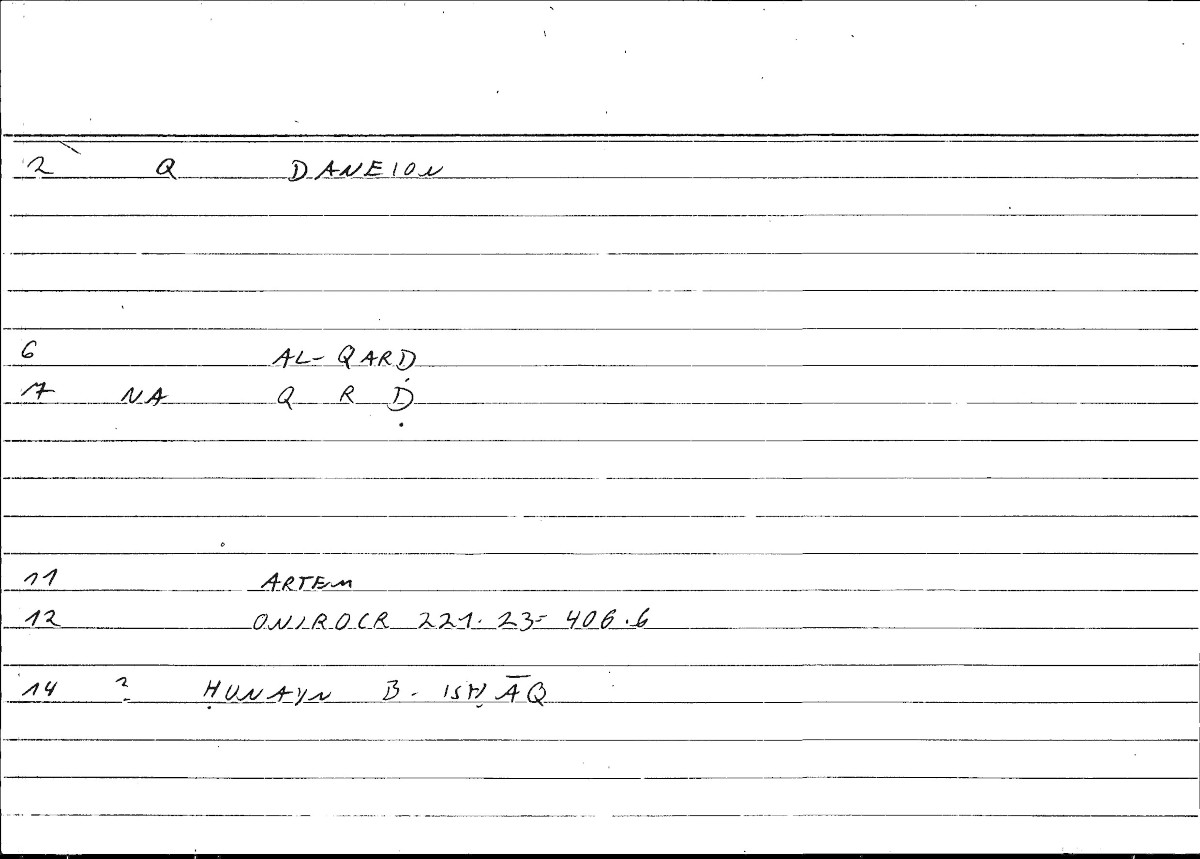 2 Q DANEION
6 AL-QARḌ
7 NA Q R Ḍ
11 ARTEM
12 ONIROCR 221.23= 406.6
14 ? ḤUNAYN B. ISḤĀQ